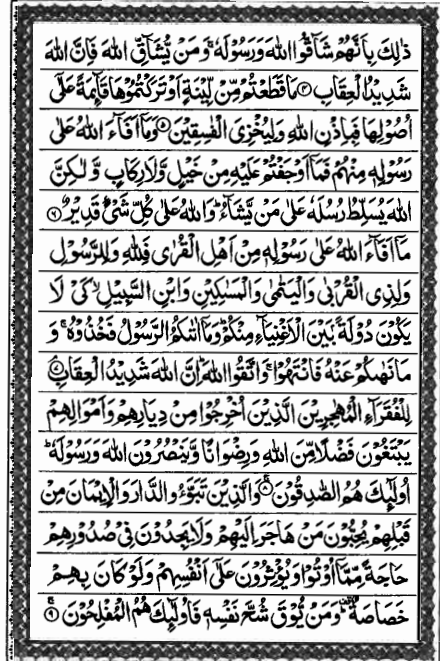 ذٰلِكَ بِاَنَّهُمْ شَآقُّوا اللّٰهَ وَرَسُوْلَهٗ ۚ وَمَنْ يُّشَآقِّ اللّٰهَ فَاِنَّ اللّٰهَ
شَدِيْدُ الْعِقَابِ ۴ مَا قَطَعْتُمْ مِّنْ لِّيْنَةٍ اَوْ تَرَكْتُمُوْهَا قَآئِمَةً عَلٰٓى
اُصُوْلِهَا فَبِاِذْنِ اللّٰهِ وَلِيُخْزِيَ الْفٰسِقِيْنَ ۵ وَمَاۤ اَفَآءَ اللّٰهُ عَلٰى
رَسُوْلِهٖ مِنْهُمْ فَمَاۤ اَوْجَفْتُمْ عَلَيْهِ مِنْ خَيْلٍ وَّلَا رِكَابٍ وَّلٰكِنَّ
اللّٰهَ يُسَلِّطُ رُسُلَهٗ عَلٰى مَنْ يَّشَآءُ ؕ وَاللّٰهُ عَلٰى كُلِّ شَيْءٍ قَدِيْرٌ ۶
مَاۤ اَفَآءَ اللّٰهُ عَلٰى رَسُوْلِهٖ مِنْ اَهْلِ الْقُرٰى فَلِلّٰهِ وَلِلرَّسُوْلِ
وَلِذِي الْقُرْبٰى وَالْيَتٰمٰى وَالْمَسٰكِيْنِ وَابْنِ السَّبِيْلِ ۙ كَيْ لَا
يَكُوْنَ دُوْلَةًۢ بَيْنَ الْاَغْنِيَآءِ مِنْكُمْ ؕ وَمَاۤ اٰتٰىكُمُ الرَّسُوْلُ فَخُذُوْهُ ۚ وَ
مَا نَهٰىكُمْ عَنْهُ فَانْتَهُوْا ۚ وَاتَّقُوا اللّٰهَ ؕ اِنَّ اللّٰهَ شَدِيْدُ الْعِقَابِ ۷
لِلْفُقَرَآءِ الْمُهٰجِرِيْنَ الَّذِيْنَ اُخْرِجُوْا مِنْ دِيَارِهِمْ وَاَمْوَالِهِمْ
يَبْتَغُوْنَ فَضْلًا مِّنَ اللّٰهِ وَرِضْوَانًا وَّيَنْصُرُوْنَ اللّٰهَ وَرَسُوْلَهٗ ؕ
اُولٰٓئِكَ هُمُ الصّٰدِقُوْنَ ۸ وَالَّذِيْنَ تَبَوَّءُو الدَّارَ وَالْاِيْمَانَ مِنْ
قَبْلِهِمْ يُحِبُّوْنَ مَنْ هَاجَرَ اِلَيْهِمْ وَلَا يَجِدُوْنَ فِيْ صُدُوْرِهِمْ
حَاجَةً مِّمَّاۤ اُوْتُوْا وَيُؤْثِرُوْنَ عَلٰٓى اَنْفُسِهِمْ وَلَوْ كَانَ بِهِمْ
خَصَاصَةٌ ؕ وَمَنْ يُّوْقَ شُحَّ نَفْسِهٖ فَاُولٰٓئِكَ هُمُ الْمُفْلِحُوْنَ ۹